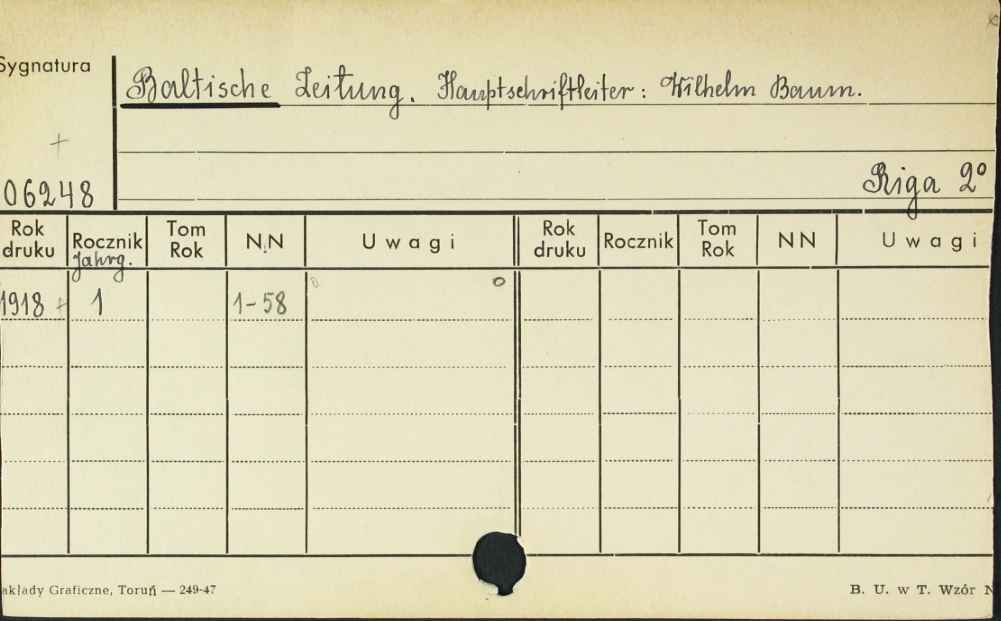 Sygnatura
Baltische Zeitung. Hauptschriftleiter: Wilhelm Baum.
+
06248
Riga 2°
Rok druku Rocznik Jahrg. Tom Rok N.N Uwagi Rok druku Rocznik Tom Rok NN Uwagi
1918 + 1 1-58 o
akłady Graficzne, Toruń — 249-47
B. U. w T. Wzór N